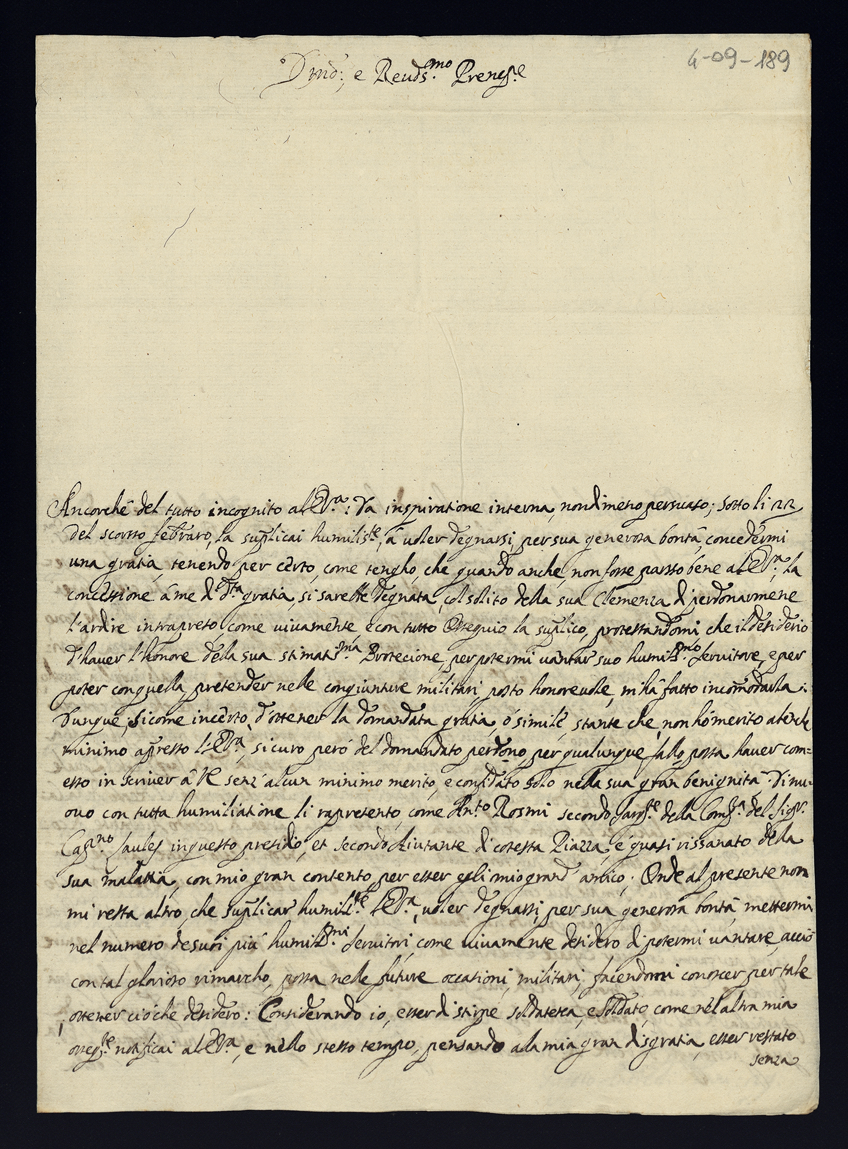 4-09-189
e Reuds.mo Prencp.e
Ancorchè del tutto incognito al E. Vra: da inspiratione interna, nondimeno persuaso; sotto li 22
del scorso febraro, la suplicai humilis.te, â uoler degnarsi, per sua generosa bontà, concedermi
una gratia, tenendo per certo, come tengho, che quando anche, non fosse parso bene al E. Vra, la
concessione â me d.a gratia, si sarebbe degnata, col solito della sua Clemenza di perdonarmene
l'ardire intrapreso, come uiuamente, e con tutto Ossequio la suplico, protestandomi che il desiderio
d'hauer l'honore della sua stimatis.ma Protecione, per potermi uantar suo humil.mo seruitore, e per
poter con quella, pretender nelle congiunture militari, posto honoreuole, mi hâ fatto incomodarla:
Dunque, sicome incerto, d'ottener la domandata gratia, ô simile, stante che, non hô merito
minimo apresso l'E. Vra, sicuro però del domandato perdono, per qualunque fallo possa hauer com=
esso in scriuer â VE senz'alcun minimo merito, e confidato solo nella sua gran benignità Di nu-
ouo con tutta humiliatione li rapresento, come Ant.o Rosmi secondo, della Comp.a del Sigr.
Cap.no Saules in questo presidio, et secondo Aiutante di cotesta Piazza, è quasi rissanato della
sua malatia, con mio gran contento, per esser egli mio grand' amico. Onde al presente non
mi resta altro, che suplicar humil.te l'E. Vra, uoler degnarsi per sua generosa bontà, mettermi
nel numero de suoi più humil.mi seruitori, come uiuamente desidero di potermi uantare, acciò
con tal glorioso rimarcho, possa nelle future occasioni, militari, facendomi conoscer per tale
ottener ciò che desidero: Considerando io, esser di stirpe soldatesca, e soldato, come nel altra mia
notificai al E. Vra, e nello stesso tempo, pensando a la mia gran disgratia, esser restato
senza